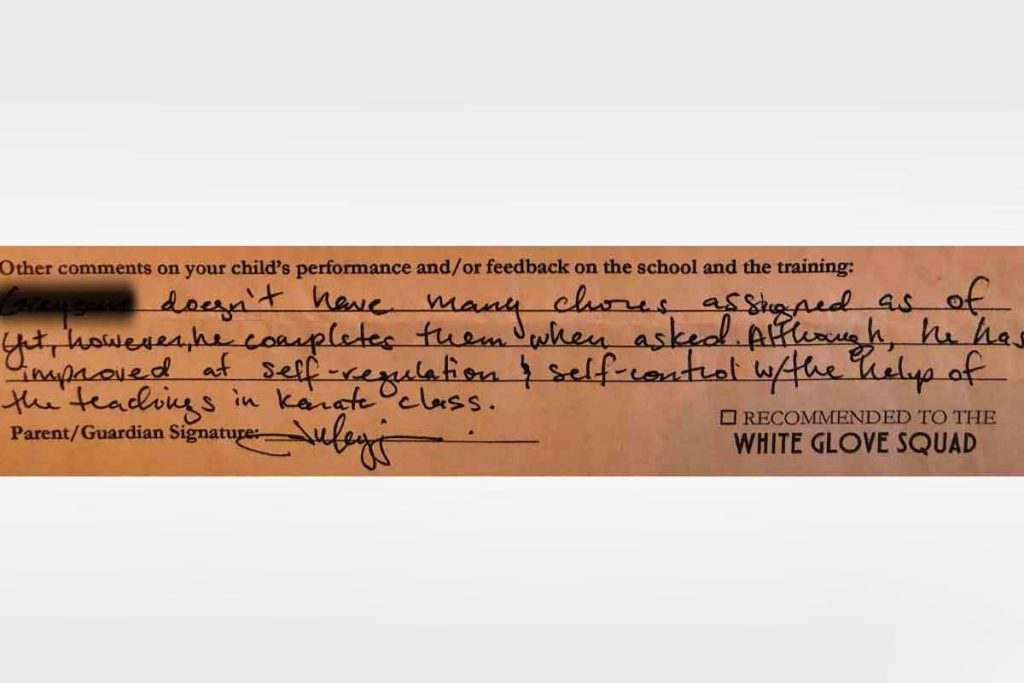 Other comments on your child's performance and/or feedback on the school and the training:
doesn't have many chores assigned as of
yet, however, he completes them when asked. Although, he has
improved at self-regulation & self-control w/the help of
the teachings in karate class.
Parent/Guardian Signature:
☐ RECOMMENDED TO THE
WHITE GLOVE SQUAD